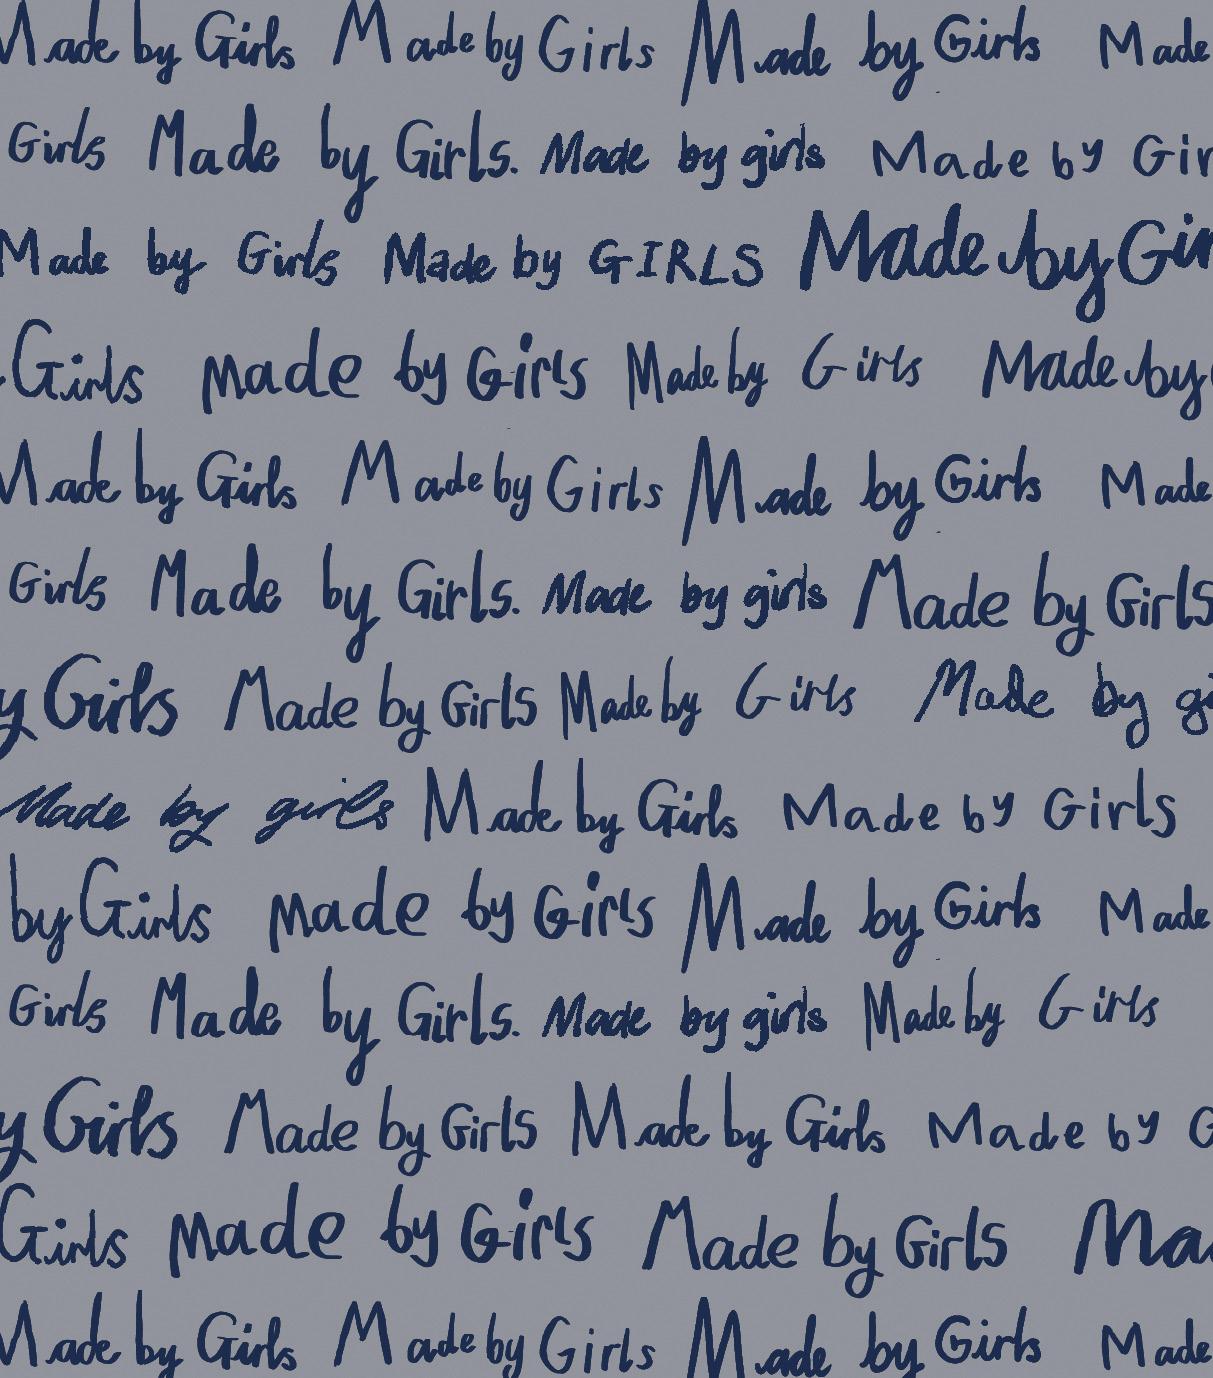 Made by Girls Made by Girls Made by Girls Made
Girls Made by Girls. Made by girls Made by Gir
Made by Girls Made by GIRLS Made by Gir
Girls made by Girls Made by Girls Made by
Made by Girls Made by Girls Made by Girls Made
Girls Made by Girls. Made by girls Made by Girls
y Girls Made by Girls Made by Girls Made by gi
Made by girls Made by Girls Made by Girls
by Girls made by Girls Made by Girls Made
Girls Made by Girls. Made by girls Made by Girls
y Girls Made by Girls Made by Girls Made by G
Girls made by Girls Made by Girls Ma
Made by Girls Made by Girls Made by Girls Made